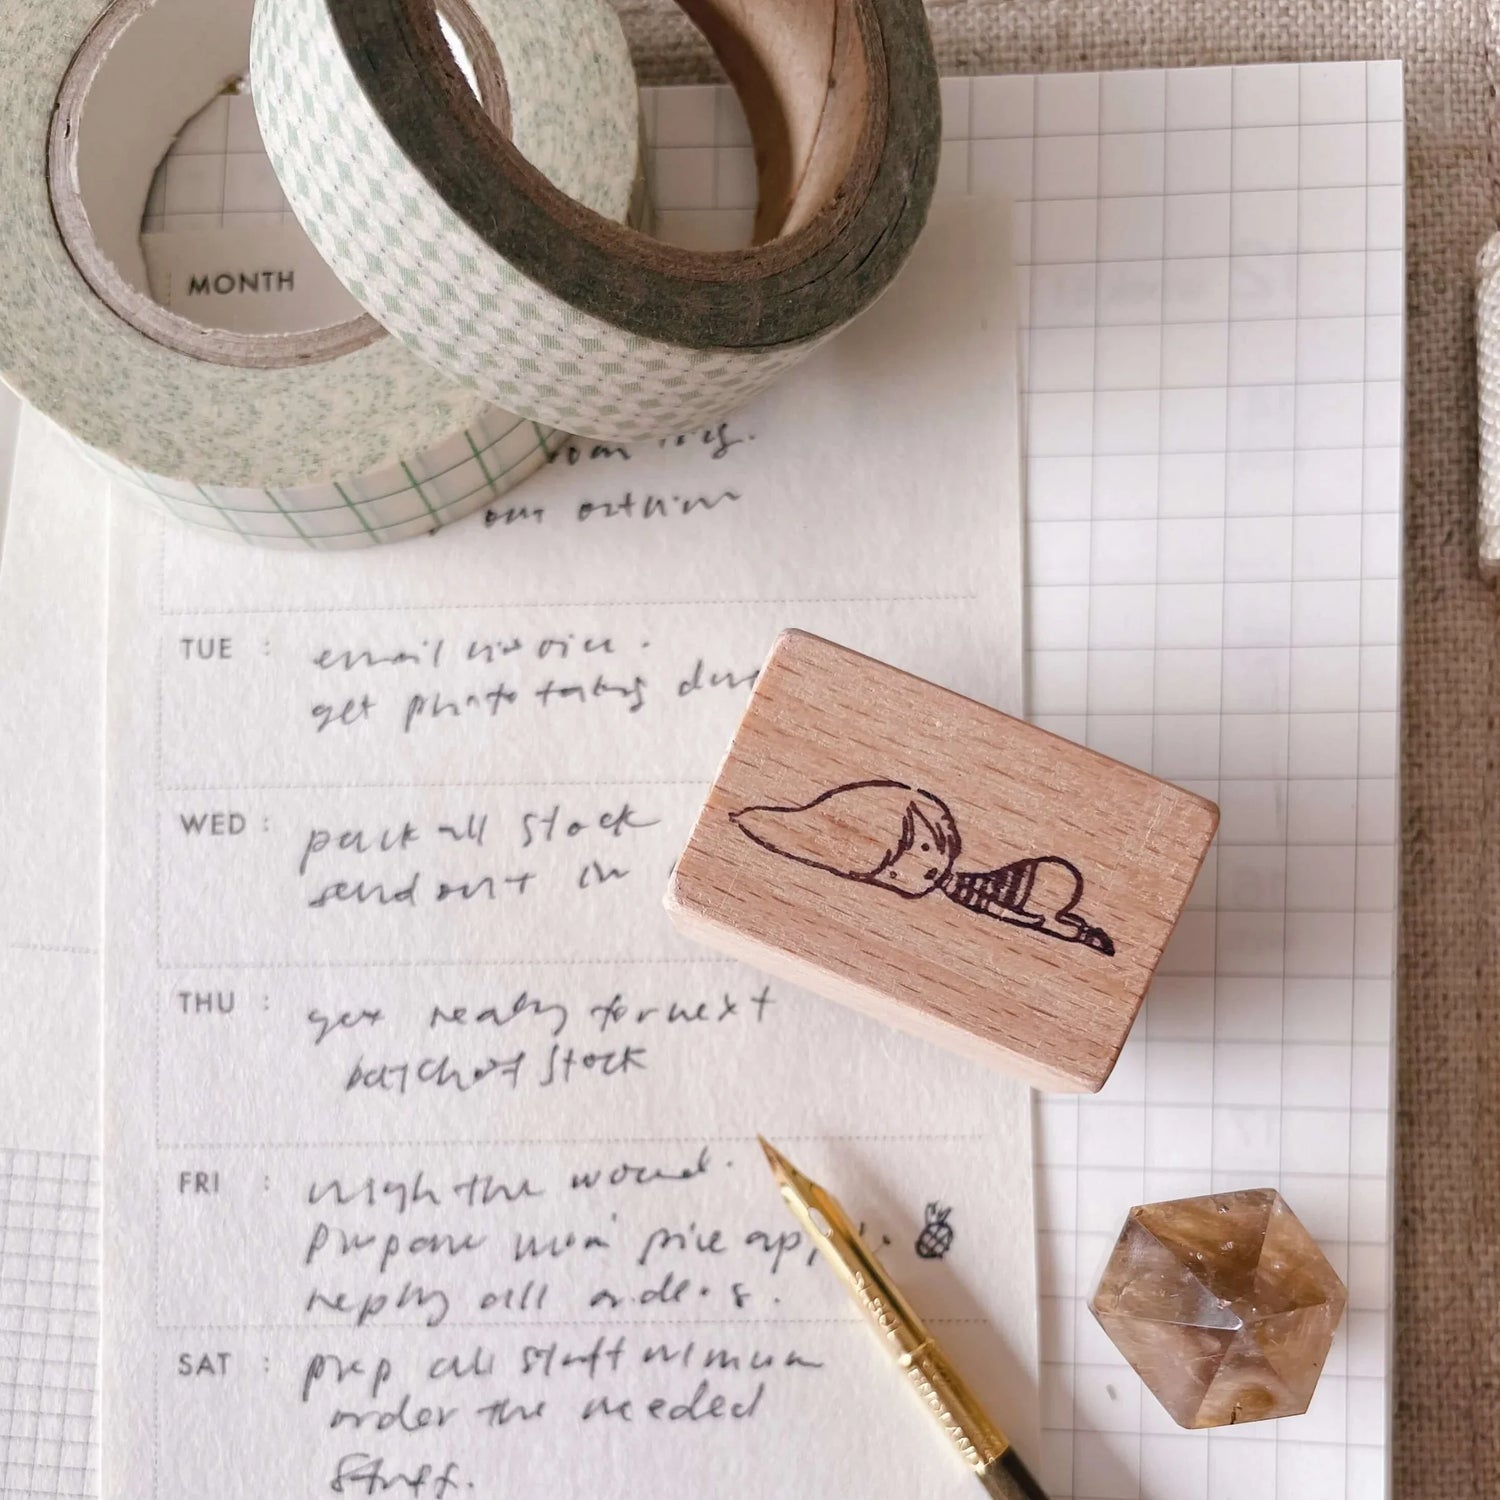 MONTH
our
TUE : email invoice.
get photo taking
WED : pack all stock
send out in
THU : get ready for next
batch of stock
FRI : the wound.
prepare mum pineapp
reply all orders.
SAT : prep all stuff w/ mum
order the needed
stuff.
ENGLAND